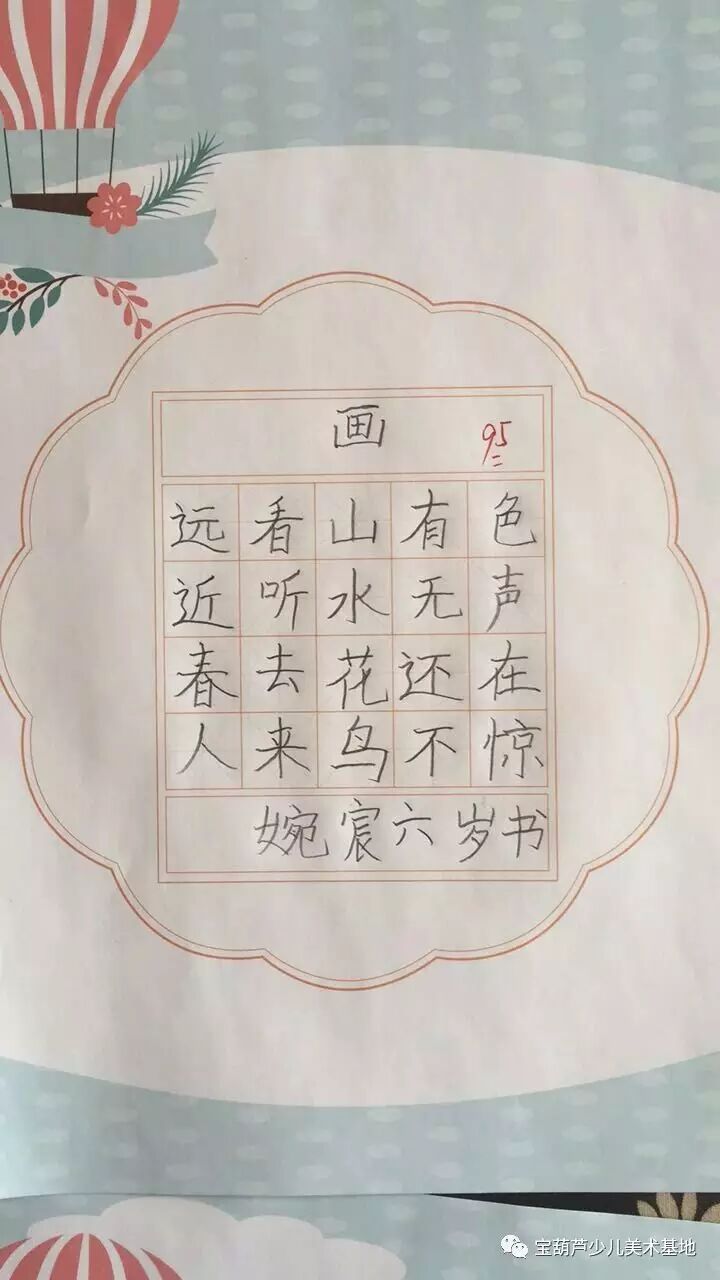 画
95
远看山有色
近听水无声
春去花还在
人来鸟不惊
婉宸六岁书
宝葫芦少儿美术基地